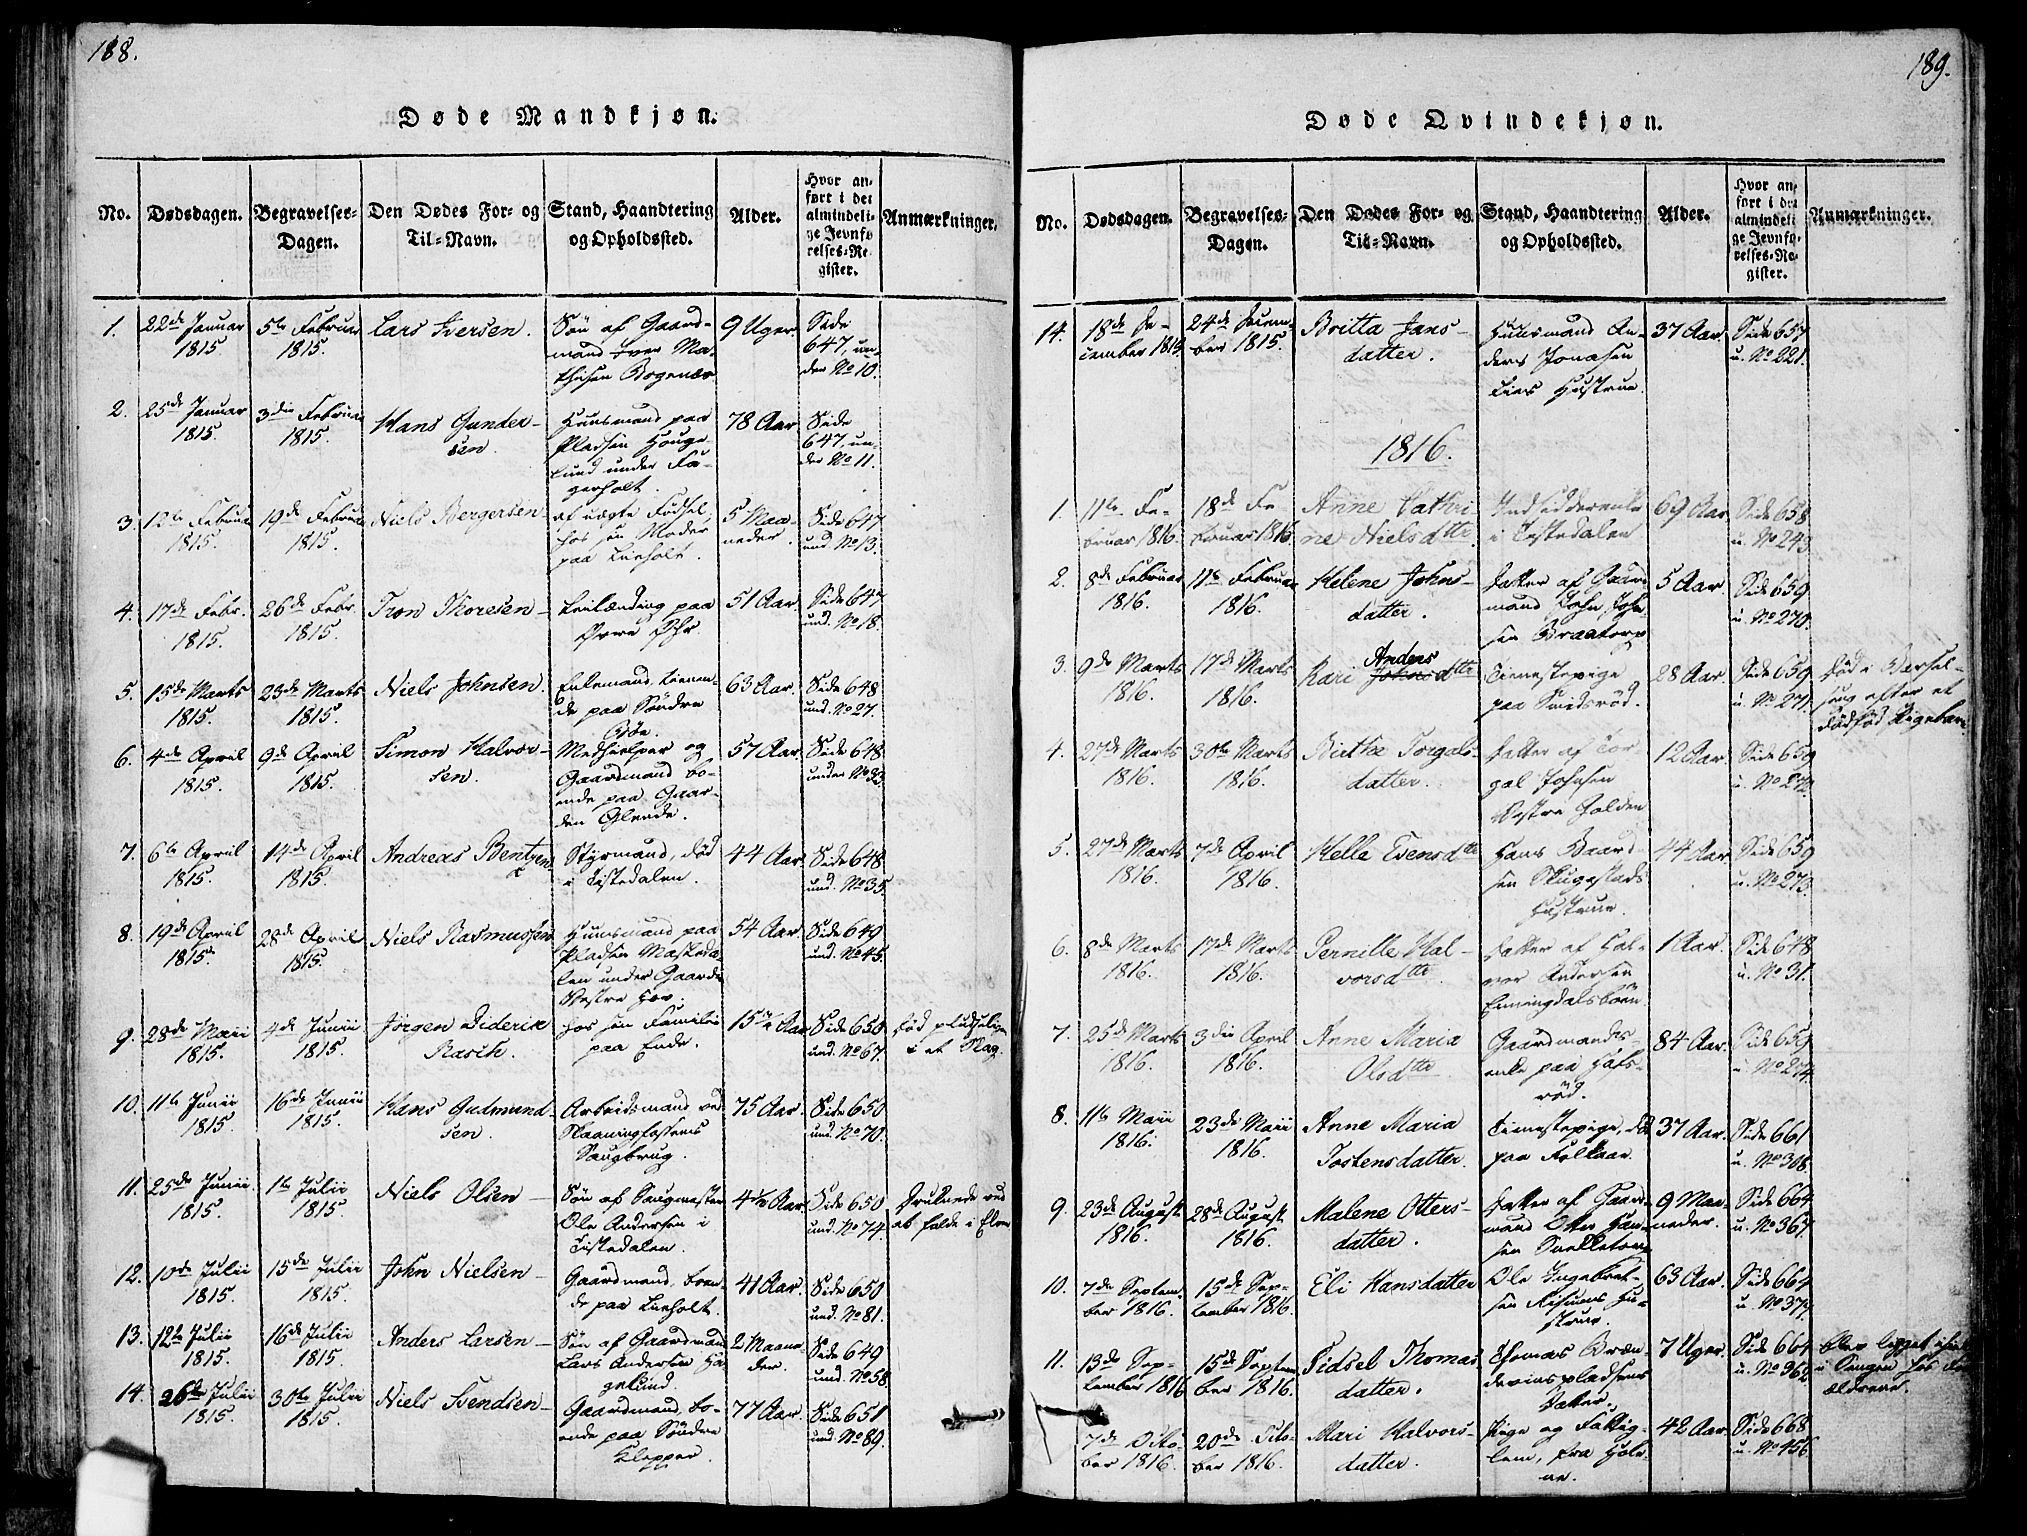 188.
Døde Mandkjøn.
No. Dødsdagen. Begravelses-Dagen. Den Dødes For- og Til-Navn. Stand, Haandtering og Opholdssted. Alder. Hvor anført i det almindelige Jevnførelses-Register. Anmærkninger.
1. 22de Januar 1815 5te Februar 1815. Lars Iversen. Søn af Gaardmand Iver Mathisen 9 Uger. Side 647, under No 10.
2. 25de Januar 1815. 3die Februar 1815. Hans Gundersen. Huusmand paa Pladsen Hougelund under Fagerholt. 78 Aar Side 647, under No 11.
3. 12te Februar 1815. 19de Februar 1815. Niels Bergersen af uægte Fødsel, hos sin Moder paa Lieholt. 5 Maaneder. Side 647 und. No 13.
4. 17de Febr. 1815. 26de Febr. 1815. Tron Thoresen Leilænding paa Øvre 51 Aar. Side 647 und. No 18.
5. 15de Marts 1815. 23de Marts 1815. Niels Johnsen. Enkemand, boende paa Søndre Bøe. 63 Aar. Side 648 und. No 27.
6. 4de April 1815. 9de April 1815. Simon Halvorsen. Medhielper og Gaardmand boende paa Gaarden Glende. 57 Aar. Side 648 under No 32.
7. 6te April 1815. 14de April 1815. Andreas Bentzen Styrmand, død i Tistedalen. 44 Aar. Side 648 und. No 35.
8. 19de April 1815. 28de April 1815. Niels Rasmussen Huusmand paa Pladsen Maskedalen under Gaarden Vestre Hov. 54 Aar. Side 649 und. No 45.
9. 28de Maii 1815. 4de Junii 1815. Jørgen Diderik Rasch. hos sin Familie paa Ende. 15 Aar Side 650 und. No 67. død pludselig i et Slag.
10. 11te Junii 1815 16de Junii 1815. Hans Gudmundsen. Arbeidsmand ved Skaaningfossens Saugbrug. 75 Aar. Side 650 und. No 70.
11. 25de Junii 1815. 1te Julii 1815. Niels Olsen Søn af Saugmester Ole Andersen i Tistedalen. 4½ Aar. Side 650 und. No 74. Druknede ved at falde i Elven
12. 10de Julii 1815. 15de Julii 1815. John Nielsen Gaardmand, boende paa Lieholt. 41 Aar. Side 650 und. No 81.
13. 12te Julii 1815. 16de Julii 1815. Anders Larsen Søn af Gaardmand Lars Andersen Hagelund. 2 Maaneder. Side 649 und. No 58.
14. 26de Julii 1815. 30te Julii 1815. Niels Svendsen Gaardmand, boende paa Søndre Klepper. 77 Aar. Side 651 und. No 89.
189.
Døde Qvindekjøn.
No. Dødsdagen. Begravelses-Dagen. Den Dødes For- og Til-Navn. Stand, Haandtering og Opholdssted. Alder. Hvor anført i det almindelige Jevnførelses-Register. Anmærkninger.
14. 18de December 1815. 24de December 1815. Britta Jansdatter. Huusmand Anders Jonasen Hustrue. 37 Aar. Side 657 u. No 221.
1816.
1. 11te Februar 1816. 18de Februar 1816. Anne Cathrine Nielsdttr. Indsidderenke i Tistedalen 69 Aar Side 658 u. No 243.
2. 8de Februar 1816. 11te Februar 1816. Helene Johnsdatter. Datter af Gaardmand John Johnsen Braatorp 5 Aar. Side 659 u. No 270.
3. 9de Marts 1816. 17de Marts 1816. Kari Anders Johnsdttr Tienestepige paa 28 Aar. Side 659 u. No 271. Død i Barselseng efter et dødfød Pigebarn
4. 27de Marts 1816. 30te Marts 1816. Birthe Torgalsdatter. Datter af Torgal Johnsen Vestre Holden 12 Aar. Side 659 u. No 272.
5. 27de Marts 1816. 7de April 1816. Helle Evensdttr Hans Baardsen Skugestads Hustrue. 44 Aar Side 659 u. No 273.
6. 8de Marts 1816. 17de Marts 1816. Pernille Halvorsdttr. Datter af Halvor Andersen Enningdalsbøen 1 Aar. Side 648 u. No 31.
7. 25de Marts 1816. 3die April 1816. Anne Maria Olsdttr Gaardmands enke paa Hafsrød. 84 Aar. Side 659 u. No 274.
8. 11te Maii 1816. 23de Maii 1816. Anne Maria Tostensdatter. Tienestepige, død paa Folkaae. 37 Aar. Side 661 u. No 308.
9. 23de August 1816. 28de August 1816. Malene Ottersdatter. Datter af Gaardmand Otter Hansen 9 Maaneder. Side 664 u. No 367.
10. 7de September 1816. 15de September 1816. Eli Hansdatter Ole Ingebretsen Risums Hustrue. 63 Aar. Side 664 u. No 377.
11. 13de September 1816 15de September 1816. Sidsel Thomasdatter. Thomas Brændeviinspladsens Datter. 7 Uger. Side 664 u. No 368. blev ligget ihiel i Sengen hos Forældrene.
7de October 1816. 20de October 1816. Mari Halvorsdatter. Pige og Fattiglem, fra 42 Aar. Side 668 u. No 456.